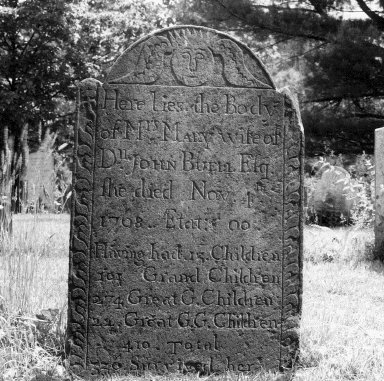 Here lies the Body
of Mrs. MARY wife of
Dn. JOHN BUELL Esq.
she died Nov. 4th
1768. Etat: 90.
Having had 13 Children
101 Grand Children
274 Great G. Children
22 Great G.G. Children
410 Total
336 Survived her